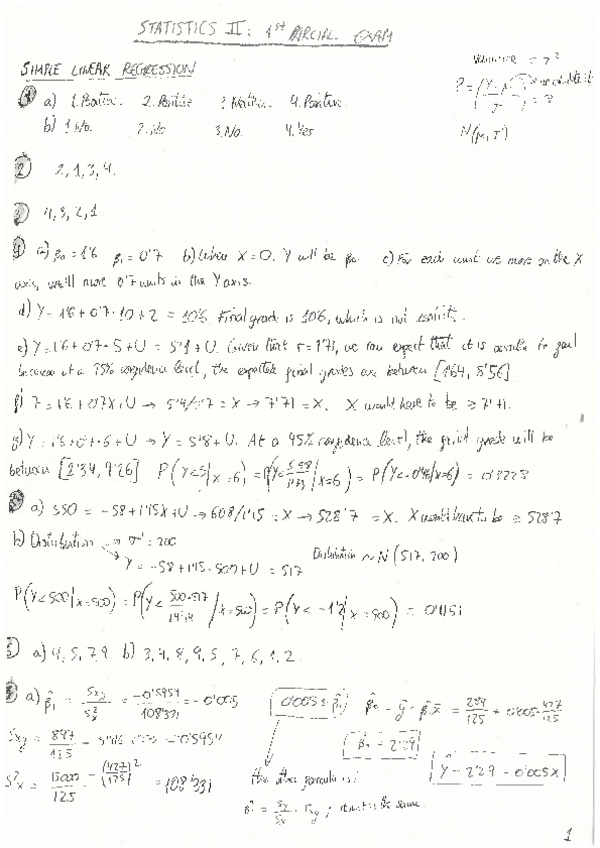 STATISTICS II: 1st PARCIAL EXAM
Variance = σ²
SIMPLE LINEAR REGRESSION
a) 1. Positive. 2. Positive 4. Positive.
b) 1. No. 2. No 3. No. 4. Yes
N(μ, σ)
2 2, 1, 3, 4.
4, 3, 2, 1
a) β₀ = 1'6 β₁ = 0'7 b) When X = 0. Y will be β₀ c) For each unit we move on the X
axis, we'll move 0'7 units in the Y axis.
d) Y = 1'6 + 0'7 · 10 + 2 = 10'6. Final grade is 10'6, which is not
e) Y = 1'6 + 0'7 · 5 + U = 5'1 + U. Given that we can expect that it is possible to
because at a 95% confidence level, the expected final grades are between [1'64, 8'56]
7 = 1'6 + 0'7X + U → 5'4/0'7 = X → 7'71 = X. X would have to be ≥ 7'71.
g) Y = 1'6 + 0'7 · 6 + U → Y = 5'8 + U. At a 95% confidence level, the final grade will be
between [2'34, 9'26] P(Y<5|X=6) = = P(Y<-0'46|X=6) = 0'3228
a) 550 = -58 + 1'15X + U → 608/1'15 = X → 528'7 = X. X would have to be ≥ 528'7
b) Distribution → σ² = 200
Y = -58 + 1'15 · 500 + U = 517
Distribution ~ N(517, 200)
P(Y<500|X=500) = P(Y < (500-517)/14'14 | X=500) = P(Y < -1'2 | X=500) = 0'1151
a) 4, 5, 7, 9 b) 3, 4, 8, 9, 5, 7, 6, 1, 2.
a) β̂₁ = Sxy/S²x = -0'5954/108'331 = -0'005
β̂₀ = ȳ - β̂x̄ = 284/125 + 0'005 · 427/125
β̂₀ = 2'29
Ŷ = 2'29 - 0'005X
S²x = 15000/125 - (427/125)² = 108'331
the other formula is:
the same.
1